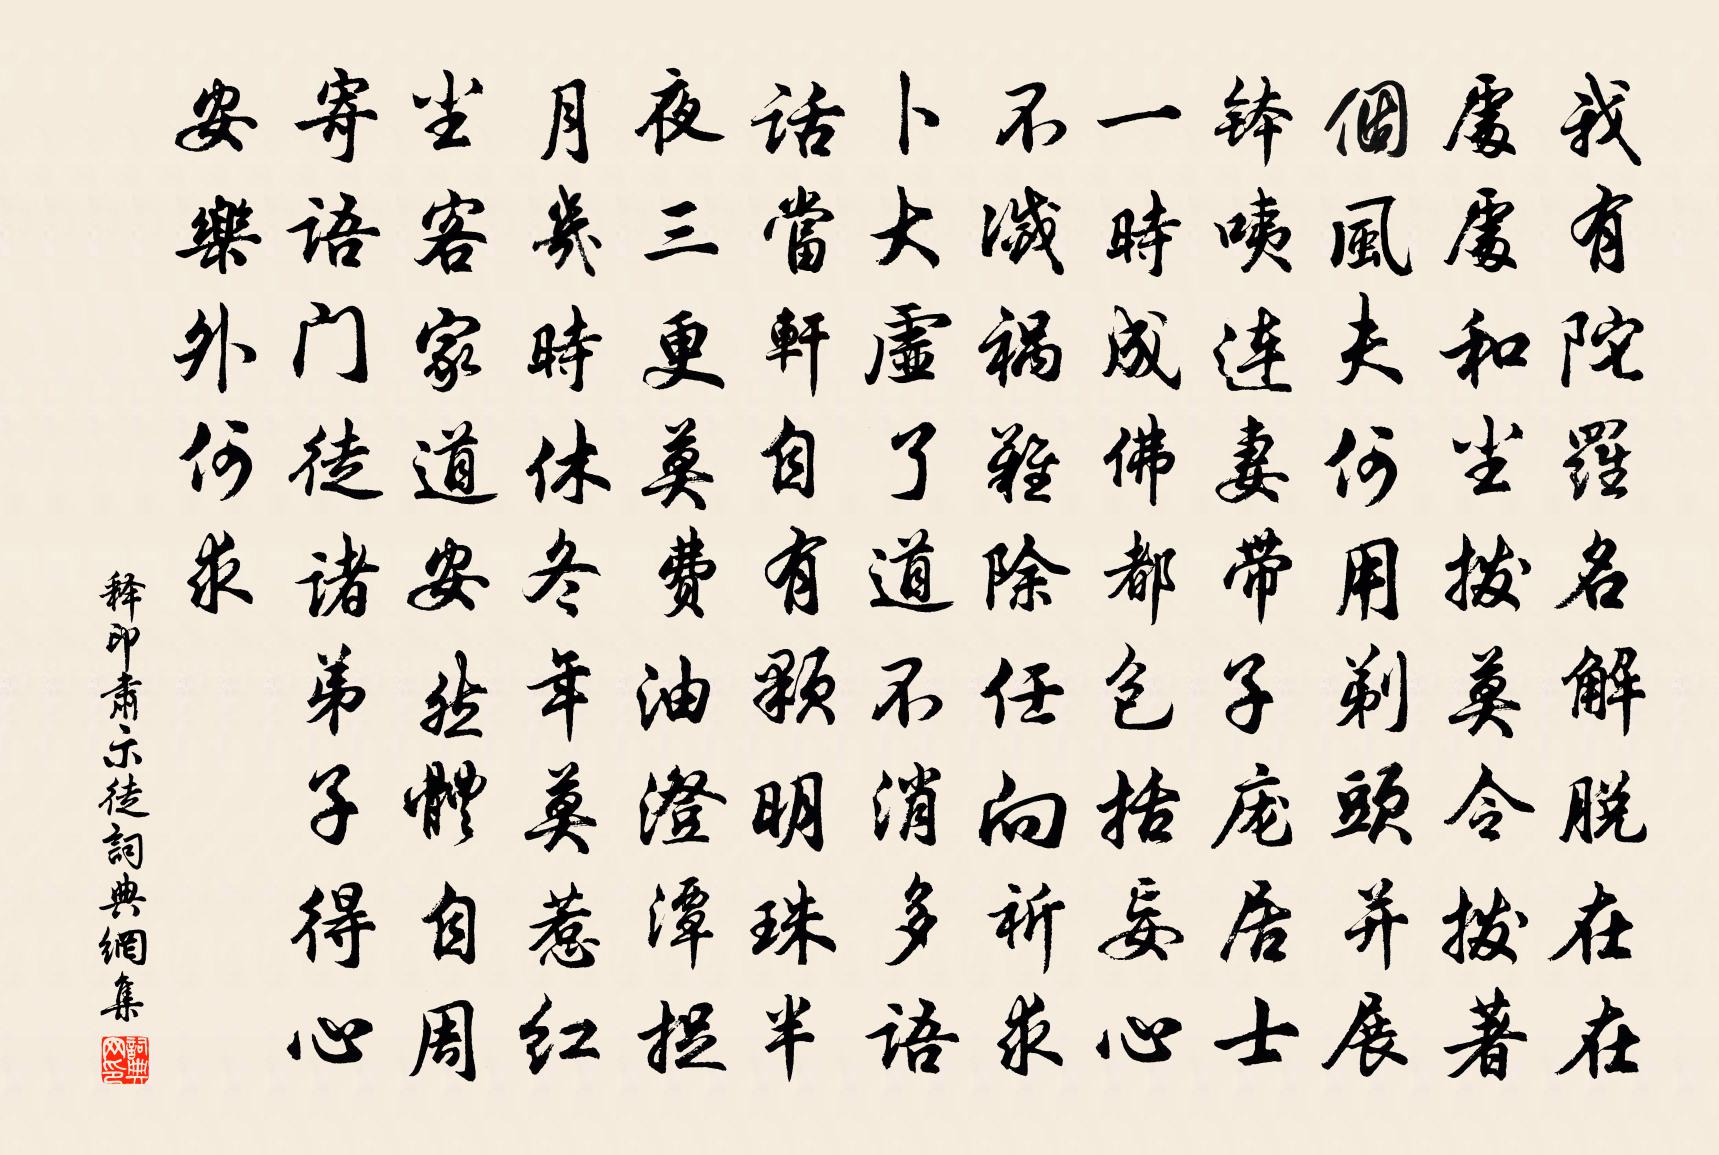 我有陀羅名解脱在在
處處和坐拨莫令拨著
個風夫何用剃頭并展
钵咦连妻带子庞居士
一時成佛都包括妄心
不滅祸難除任向祈求
卜大虛了道不消多語
話當軒自有顆明珠半
夜三更莫费油澄潭捉
月幾時休冬年莫惹红
坐客家道安然體自周
寄語门徒诸弟子得心
安樂外何求
释印肃示徒詞典網集
詞典网印